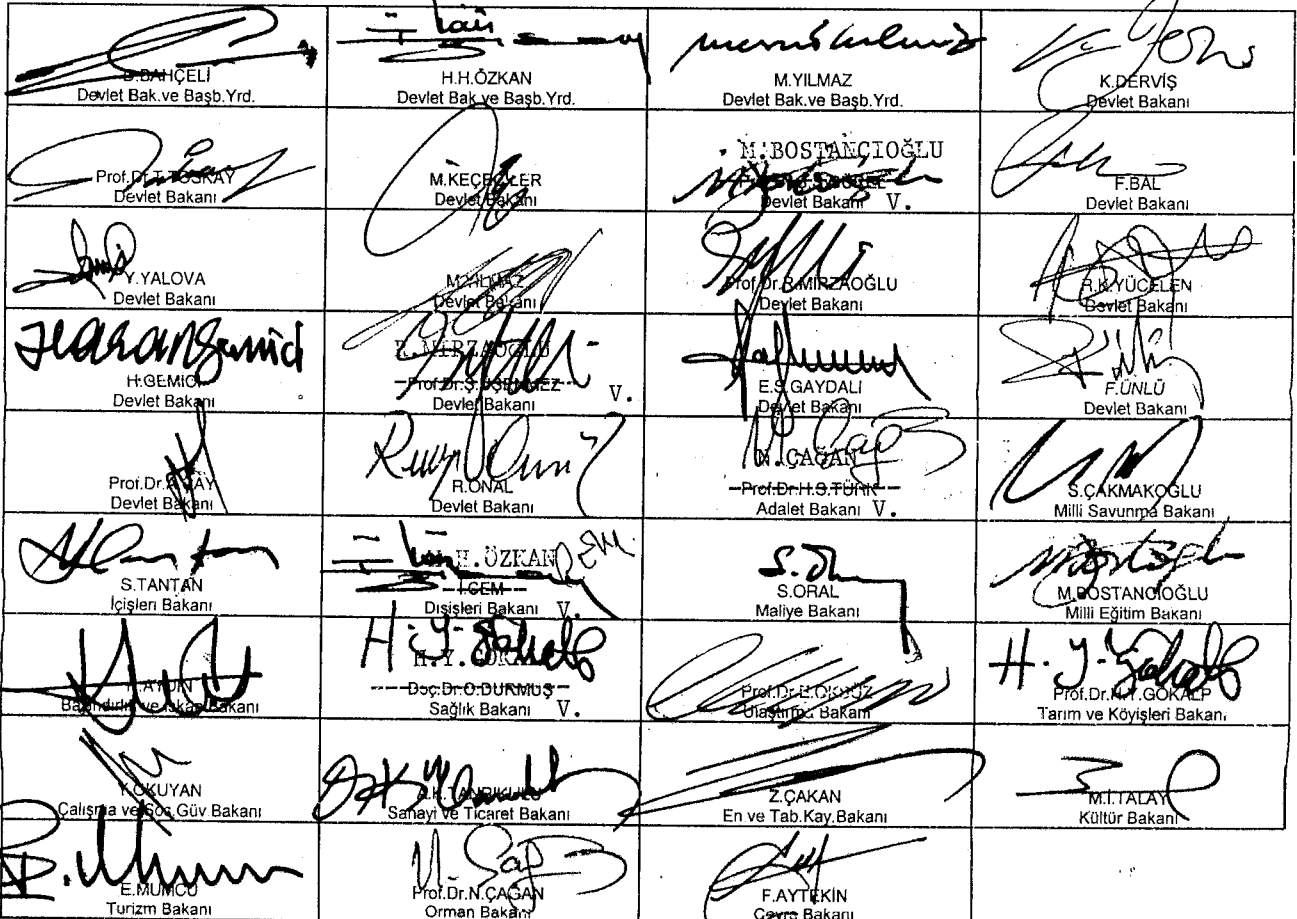 D.BAHÇELİ
Devlet Bak.ve Başb.Yrd.
H.H.ÖZKAN
Devlet Bak.ve Başb.Yrd.
M.YILMAZ
Devlet Bak.ve Başb.Yrd.
K.DERVİŞ
Devlet Bakanı
Prof.Dr.T.TOSKAY
Devlet Bakanı
M.KEÇECİLER
Devlet Bakanı
M.BOSTANCIOĞLU
Devlet Bakanı V.
F.BAL
Devlet Bakanı
Y.YALOVA
Devlet Bakanı
M.YILMAZ
Devlet Bakanı
Prof.Dr.R.MİRZAOĞLU
Devlet Bakanı
R.K.YÜCELEN
Devlet Bakanı
Hasan Gemici
H.GEMİCİ
Devlet Bakanı
R.MİRZAOĞLU
Prof.Dr.Ş.ÜŞENMEZ
Devlet Bakanı V.
E.S.GAYDALI
Devlet Bakanı
F.ÜNLÜ
Devlet Bakanı
Prof.Dr.A.ÇAY
Devlet Bakanı
R.ÖNAL
Devlet Bakanı
N.ÇAĞAN
Prof.Dr.H.S.TÜRK
Adalet Bakanı V.
S.ÇAKMAKOĞLU
Milli Savunma Bakanı
S.TANTAN
İçişleri Bakanı
H.H.ÖZKAN
İ.CEM
Dışişleri Bakanı V.
S.ORAL
Maliye Bakanı
M.BOSTANCIOĞLU
Milli Eğitim Bakanı
K.AYDIN
Bayındırlık ve İskan Bakanı
H.Y.GÖKALP
Doç.Dr.O.DURMUŞ
Sağlık Bakanı V.
Prof.Dr.E.ÖKSÜZ
Ulaştırma Bakanı
H.Y.Gökalp
Prof.Dr.H.Y.GÖKALP
Tarım ve Köyişleri Bakanı
Y.OKUYAN
Çalışma ve Sos.Güv Bakanı
A.K.TANRIKULU
Sanayi ve Ticaret Bakanı
Z.ÇAKAN
En ve Tab.Kay.Bakanı
M.İ.TALAY
Kültür Bakanı
E.MUMCU
Turizm Bakanı
Prof.Dr.N.ÇAĞAN
Orman Bakanı
F.AYTEKİN
Çevre Bakanı